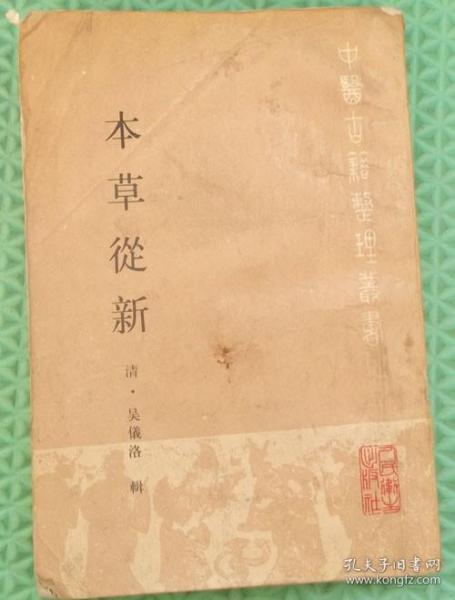 中醫古籍整理叢書
本草從新
清·吴儀洛 輯
人民衛生出版社
孔夫子旧书网
www.kongfz.com